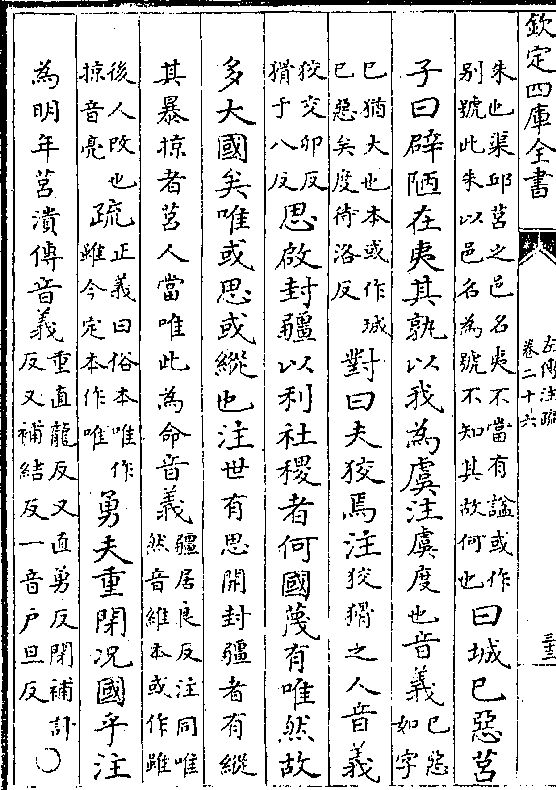 欽定四庫全書
左傳注疏
卷二十六
三十三
朱也渠邱莒之邑名夷不當有諡或作
别號此朱以邑名為號不知其故何也
曰城已惡莒
子曰辟陋在夷其孰以我為虞注虞度也音義
已惡
如字
已猶大也本或作城
已惡矣度待洛反
對曰夫狡焉注狡猾之人音義
狡交卯反
猾于八反
思啟封疆以利社稷者何國蔑有唯然故
多大國矣唯或思或縱也注世有思開封疆者有縱
其暴掠者莒人當唯此為命音義
疆居良反注同唯
然音維本或作雖
後人改也
掠音亮
疏
正義曰俗本唯作
雖今定本作唯
勇夫重閉况國乎注
為明年莒潰傳音義
重直龍反又直勇反閉補計
反又補結反一音戶旦反
○